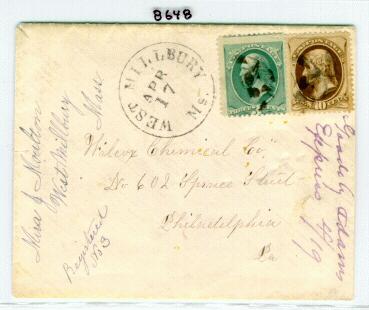 8648
WEST MILLBURY MS
APR
17
Mira J Moulton
West Millbury
Mass
Registered
No 3
Wilcox Chemical Co
No 602 Spruce Street
Philadelphia
Pa
Grady Adams
Express
4/19